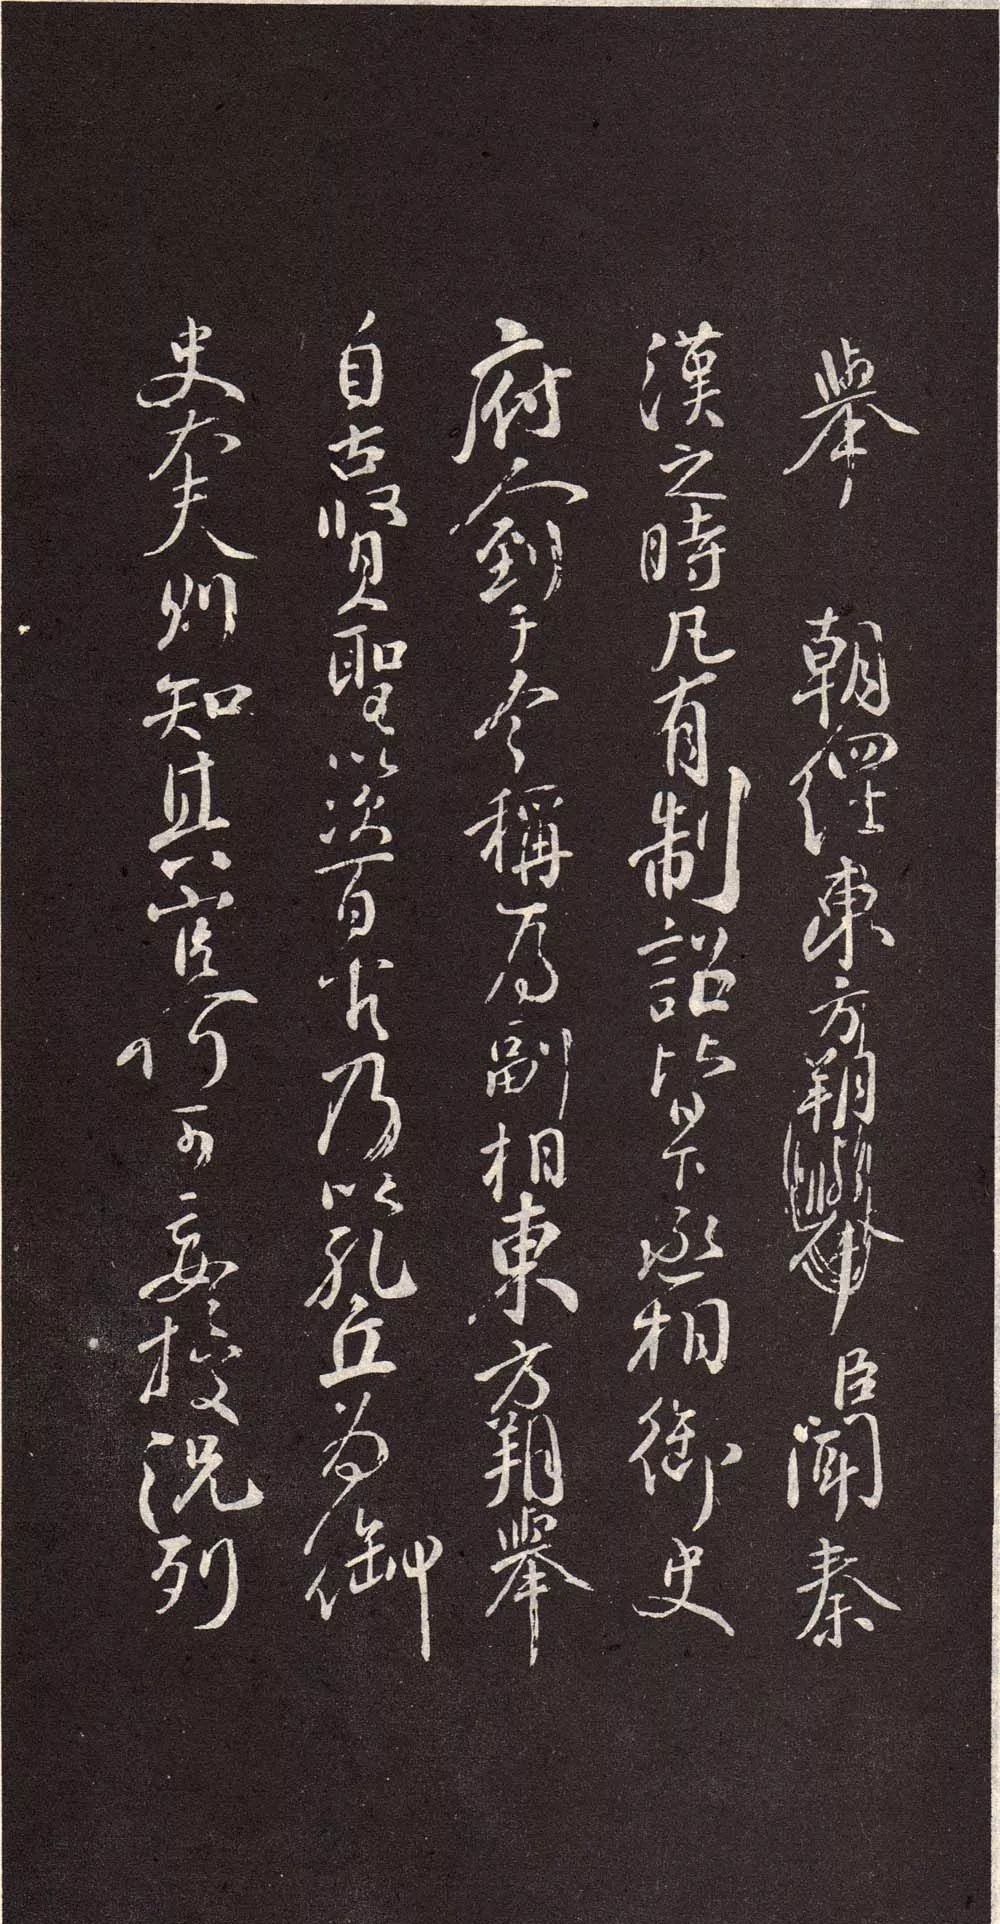 舉 朝經東方朔舉臣聞秦
漢之時凡有制詔皆下丞相御史
府到于今稱為副相東方朔舉
自古賢聖以次百官乃以孔丘為御
史大夫則知其官何可妄授況列